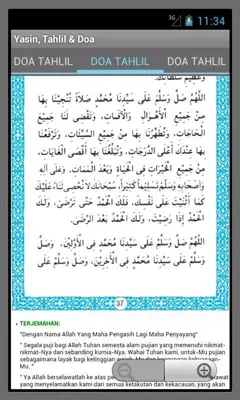 3G 11:34
Yasin, Tahlil & Doa
DOA TAHLIL DOA TAHLIL DOA TAHLIL
اَللّٰهُمَّ صَلِّ وَسَلِّمْ عَلَى سَيِّدِنَا مُحَمَّدٍ صَلَاةً تُنْجِيْنَا بِهَا
مِنْ جَمِيْعِ الْأَهْوَالِ وَالْآفَاتِ، وَتَقْضِى لَنَا جَمِيْعَ
الْحَاجَاتِ، وَتُطَهِّرُنَا بِهَا مِنْ جَمِيْعِ السَّيِّئَاتِ، وَتَرْفَعُنَا
بِهَا عِنْدَكَ أَعْلَى الدَّرَجَاتِ، وَتُبَلِّغُنَا بِهَا أَقْصَى الْغَايَاتِ،
مِنْ جَمِيْعِ الْخَيْرَاتِ فِى الْحَيَاةِ وَبَعْدَ الْمَمَاتِ، وَعَلَى آلِهِ
وَاَصْحَابِهِ وَسَلِّمْ تَسْلِيْمًا كَثِيْرًا، سُبْحَانَكَ لَا نُحْصِى ثَنَاءً عَلَيْكَ
كَمَا أَثْنَيْتَ عَلَى نَفْسِكَ، فَلَكَ الْحَمْدُ حَتَّى تَرْضَى، وَلَكَ
الْحَمْدُ إِذَا رَضِيْتَ، وَلَكَ الْحَمْدُ بَعْدَ الرِّضَى.
اَللّٰهُمَّ صَلِّ وَسَلِّمْ عَلَى سَيِّدِنَا مُحَمَّدٍ فِى الْأَوَّلِيْنَ، وَصَلِّ
وَسَلِّمْ عَلَى سَيِّدِنَا مُحَمَّدٍ فِى الْآخِرِيْنَ، وَصَلِّ وَسَلِّمْ
37
TERJEMAHAN:
"Dengan Nama Allah Yang Maha Pengasih Lagi Maha Penyayang"
" Segala puji bagi Allah Tuhan semesta alam pujian yang memenuhi nikmat-
nikmat-Nya dan sebanding kurnia-Nya. Wahai Tuhan kami, untuk-Mu pujian
Mu. "
" Ya Allah berselawatlah ke atas
yang menyelamatkan kami dari semua ketakutan dan kekacauan, yang akan